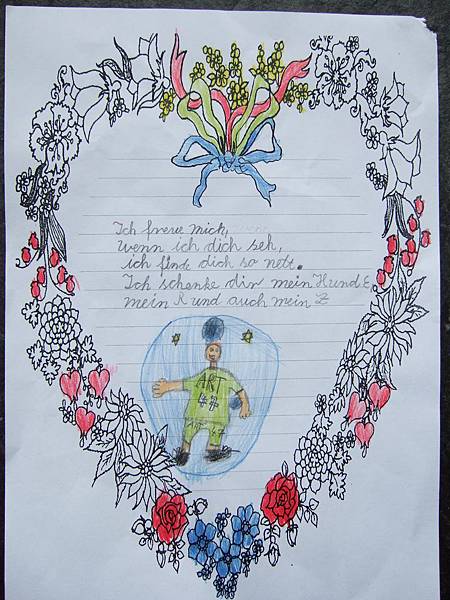 Ich freue mich,
wenn ich dich seh,
ich finde dich so nett.
Ich schenke dir mein H und E
mein R und auch mein Z
ART